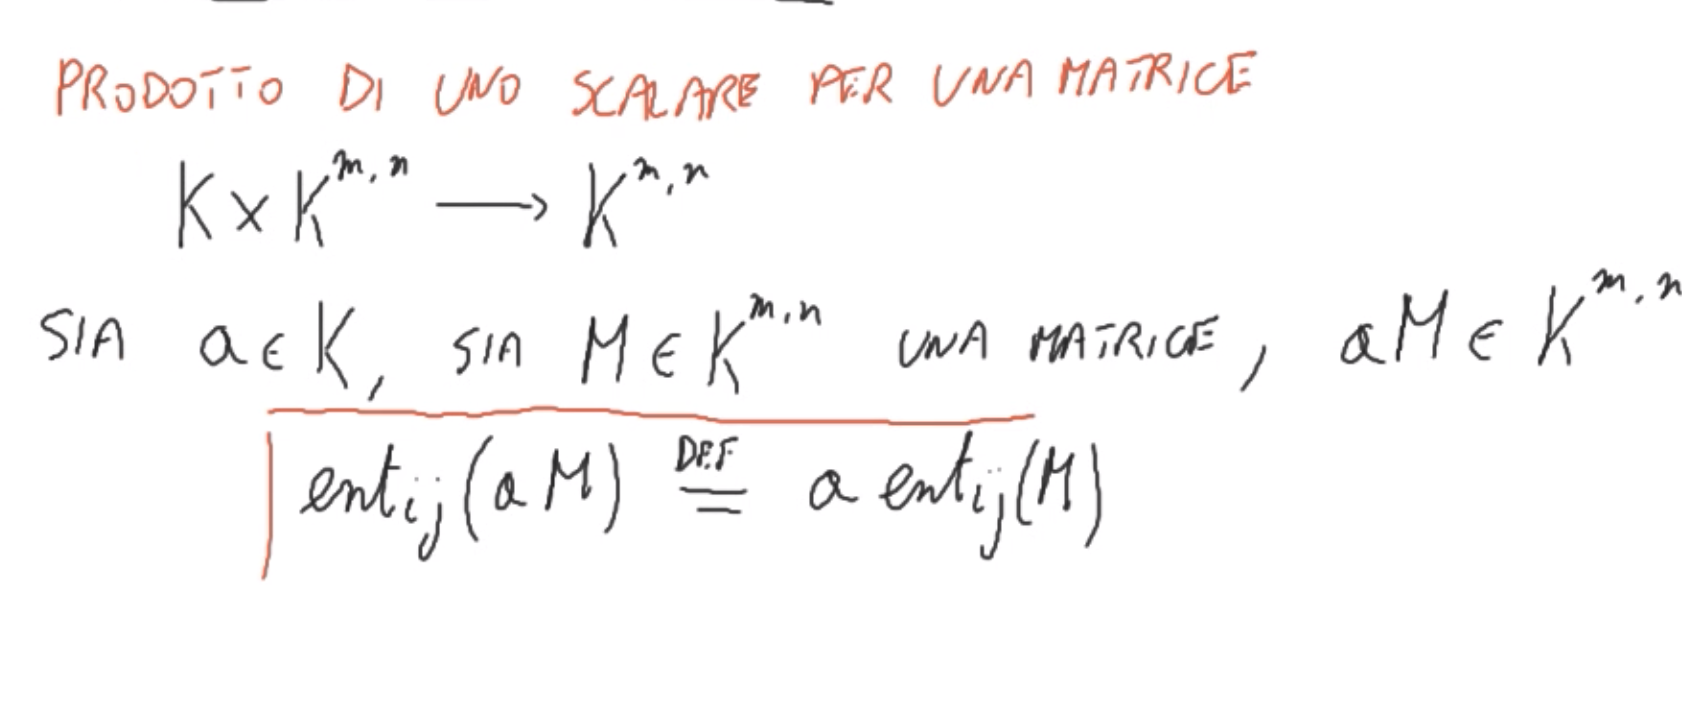 PRODOTTO DI UNO SCALARE PER UNA MATRICE
K × K^{m,n} ⟶ K^{m,n}
SIA a ∈ K, SIA M ∈ K^{m,n} UNA MATRICE, aM ∈ K^{m,n}
ent_{ij}(aM) \overset{DEF}{=} a ent_{ij}(M)